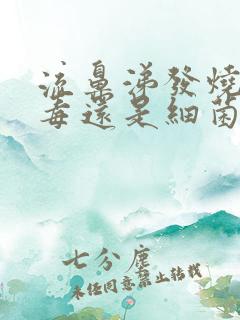 流鼻涕發燒
毒還是細菌
七分塵
未經同意禁止轉載